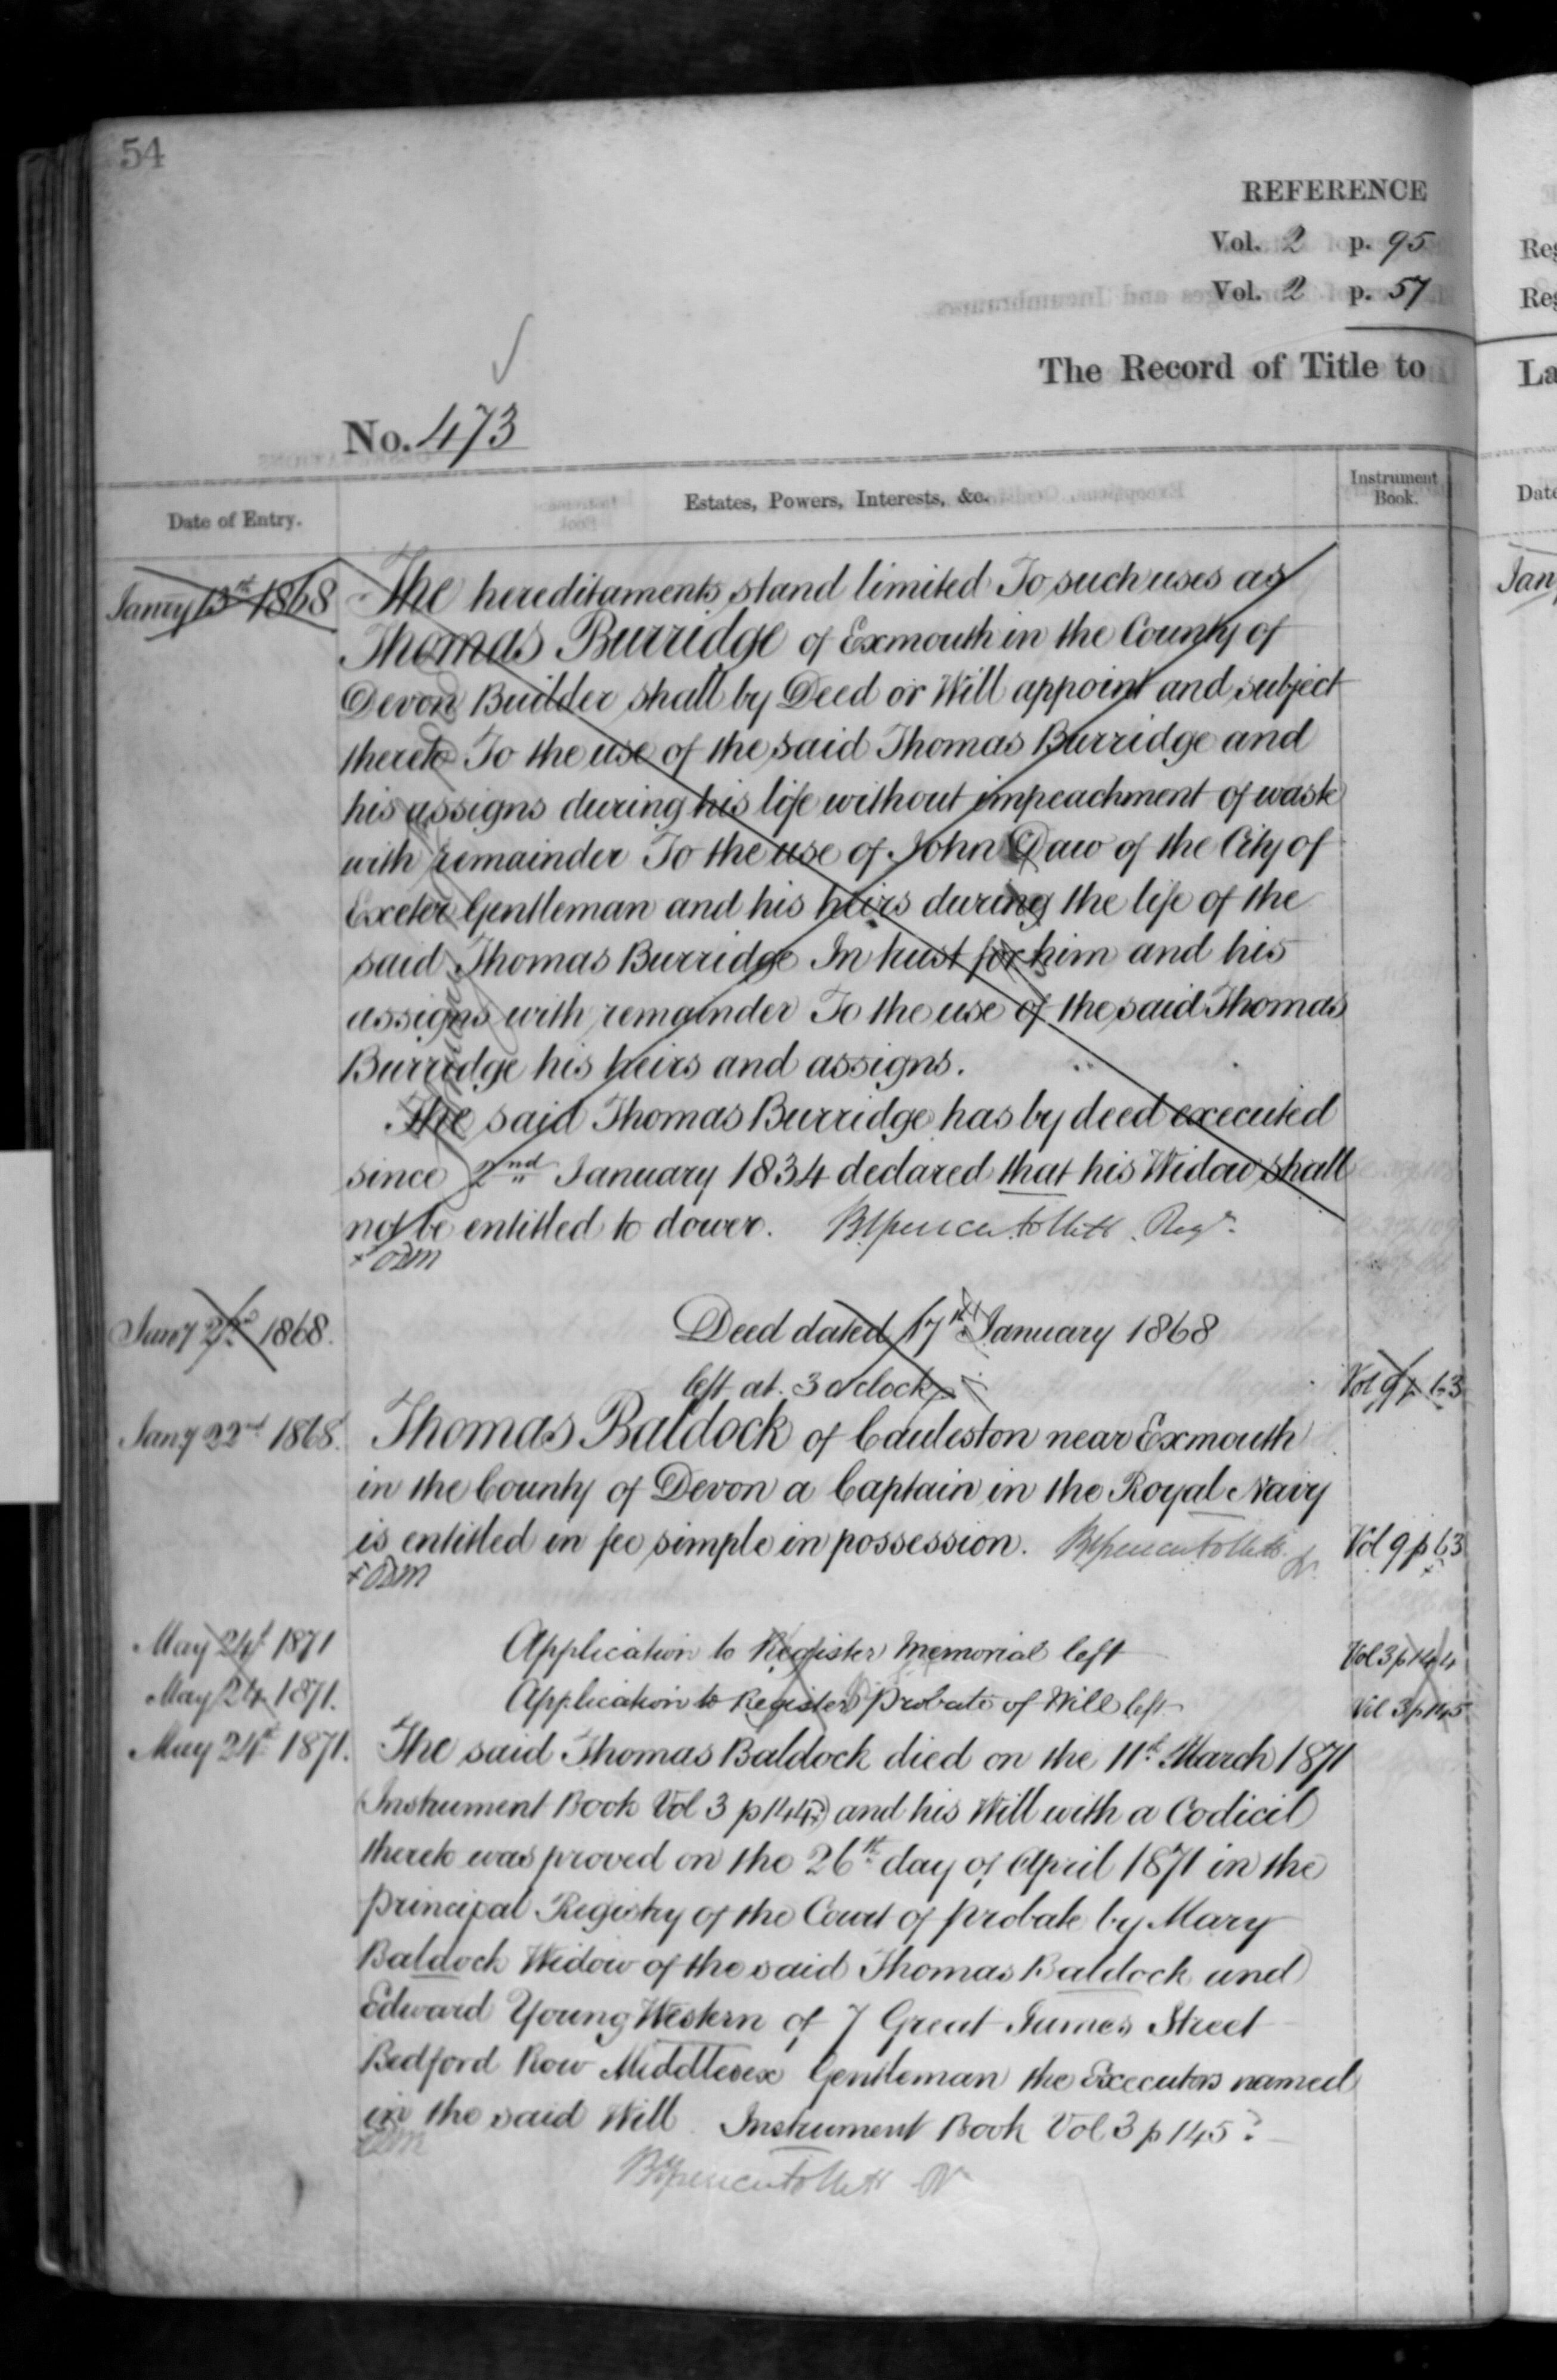 54
REFERENCE
Vol. 2 p. 95
Vol. 2 p. 57
The Record of Title to
No. 473
Date of Entry.
Estates, Powers, Interests, &c.
Instrument Book.
Janry 13th 1868
The hereditaments stand limited To such uses as
Thomas Burridge of Exmouth in the County of
Devon Builder shall by Deed or Will appoint and subject
thereto To the use of the said Thomas Burridge and
his assigns during his life without impeachment of waste
with remainder To the use of John Daw of the City of
Exeter Gentleman and his heirs during the life of the
said Thomas Burridge In trust for him and his
assigns with remainder To the use of the said Thomas
Burridge his heirs and assigns.
The said Thomas Burridge has by deed executed
since 2nd January 1834 declared that his Widow shall
not be entitled to dower. Regr.
Jany 1868.
Deed dated 17th January 1868
left at 3 o'clock
Vol 9 p 63
Jany 22nd 1868.
Thomas Baldock of Cauleston near Exmouth
in the County of Devon a Captain in the Royal Navy
is entitled in fee simple in possession.
Vol 9 p 63
May 24th 1871
Application to Register Memorial left
Vol 3 p 144
May 24 1871.
Application to Register Probate of Will left
Vol 3 p 145
May 24th 1871.
The said Thomas Baldock died on the 11th March 1871
(Instrument Book Vol 3 p 144) and his Will with a Codicil
thereto was proved on the 26th day of April 1871 in the
principal Registry of the Court of probate by Mary
Baldock Widow of the said Thomas Baldock and
Edward Young Western of 7 Great James Street
Bedford Row Middlesex Gentleman the Executors named
in the said Will Instrument Book Vol 3 p 145